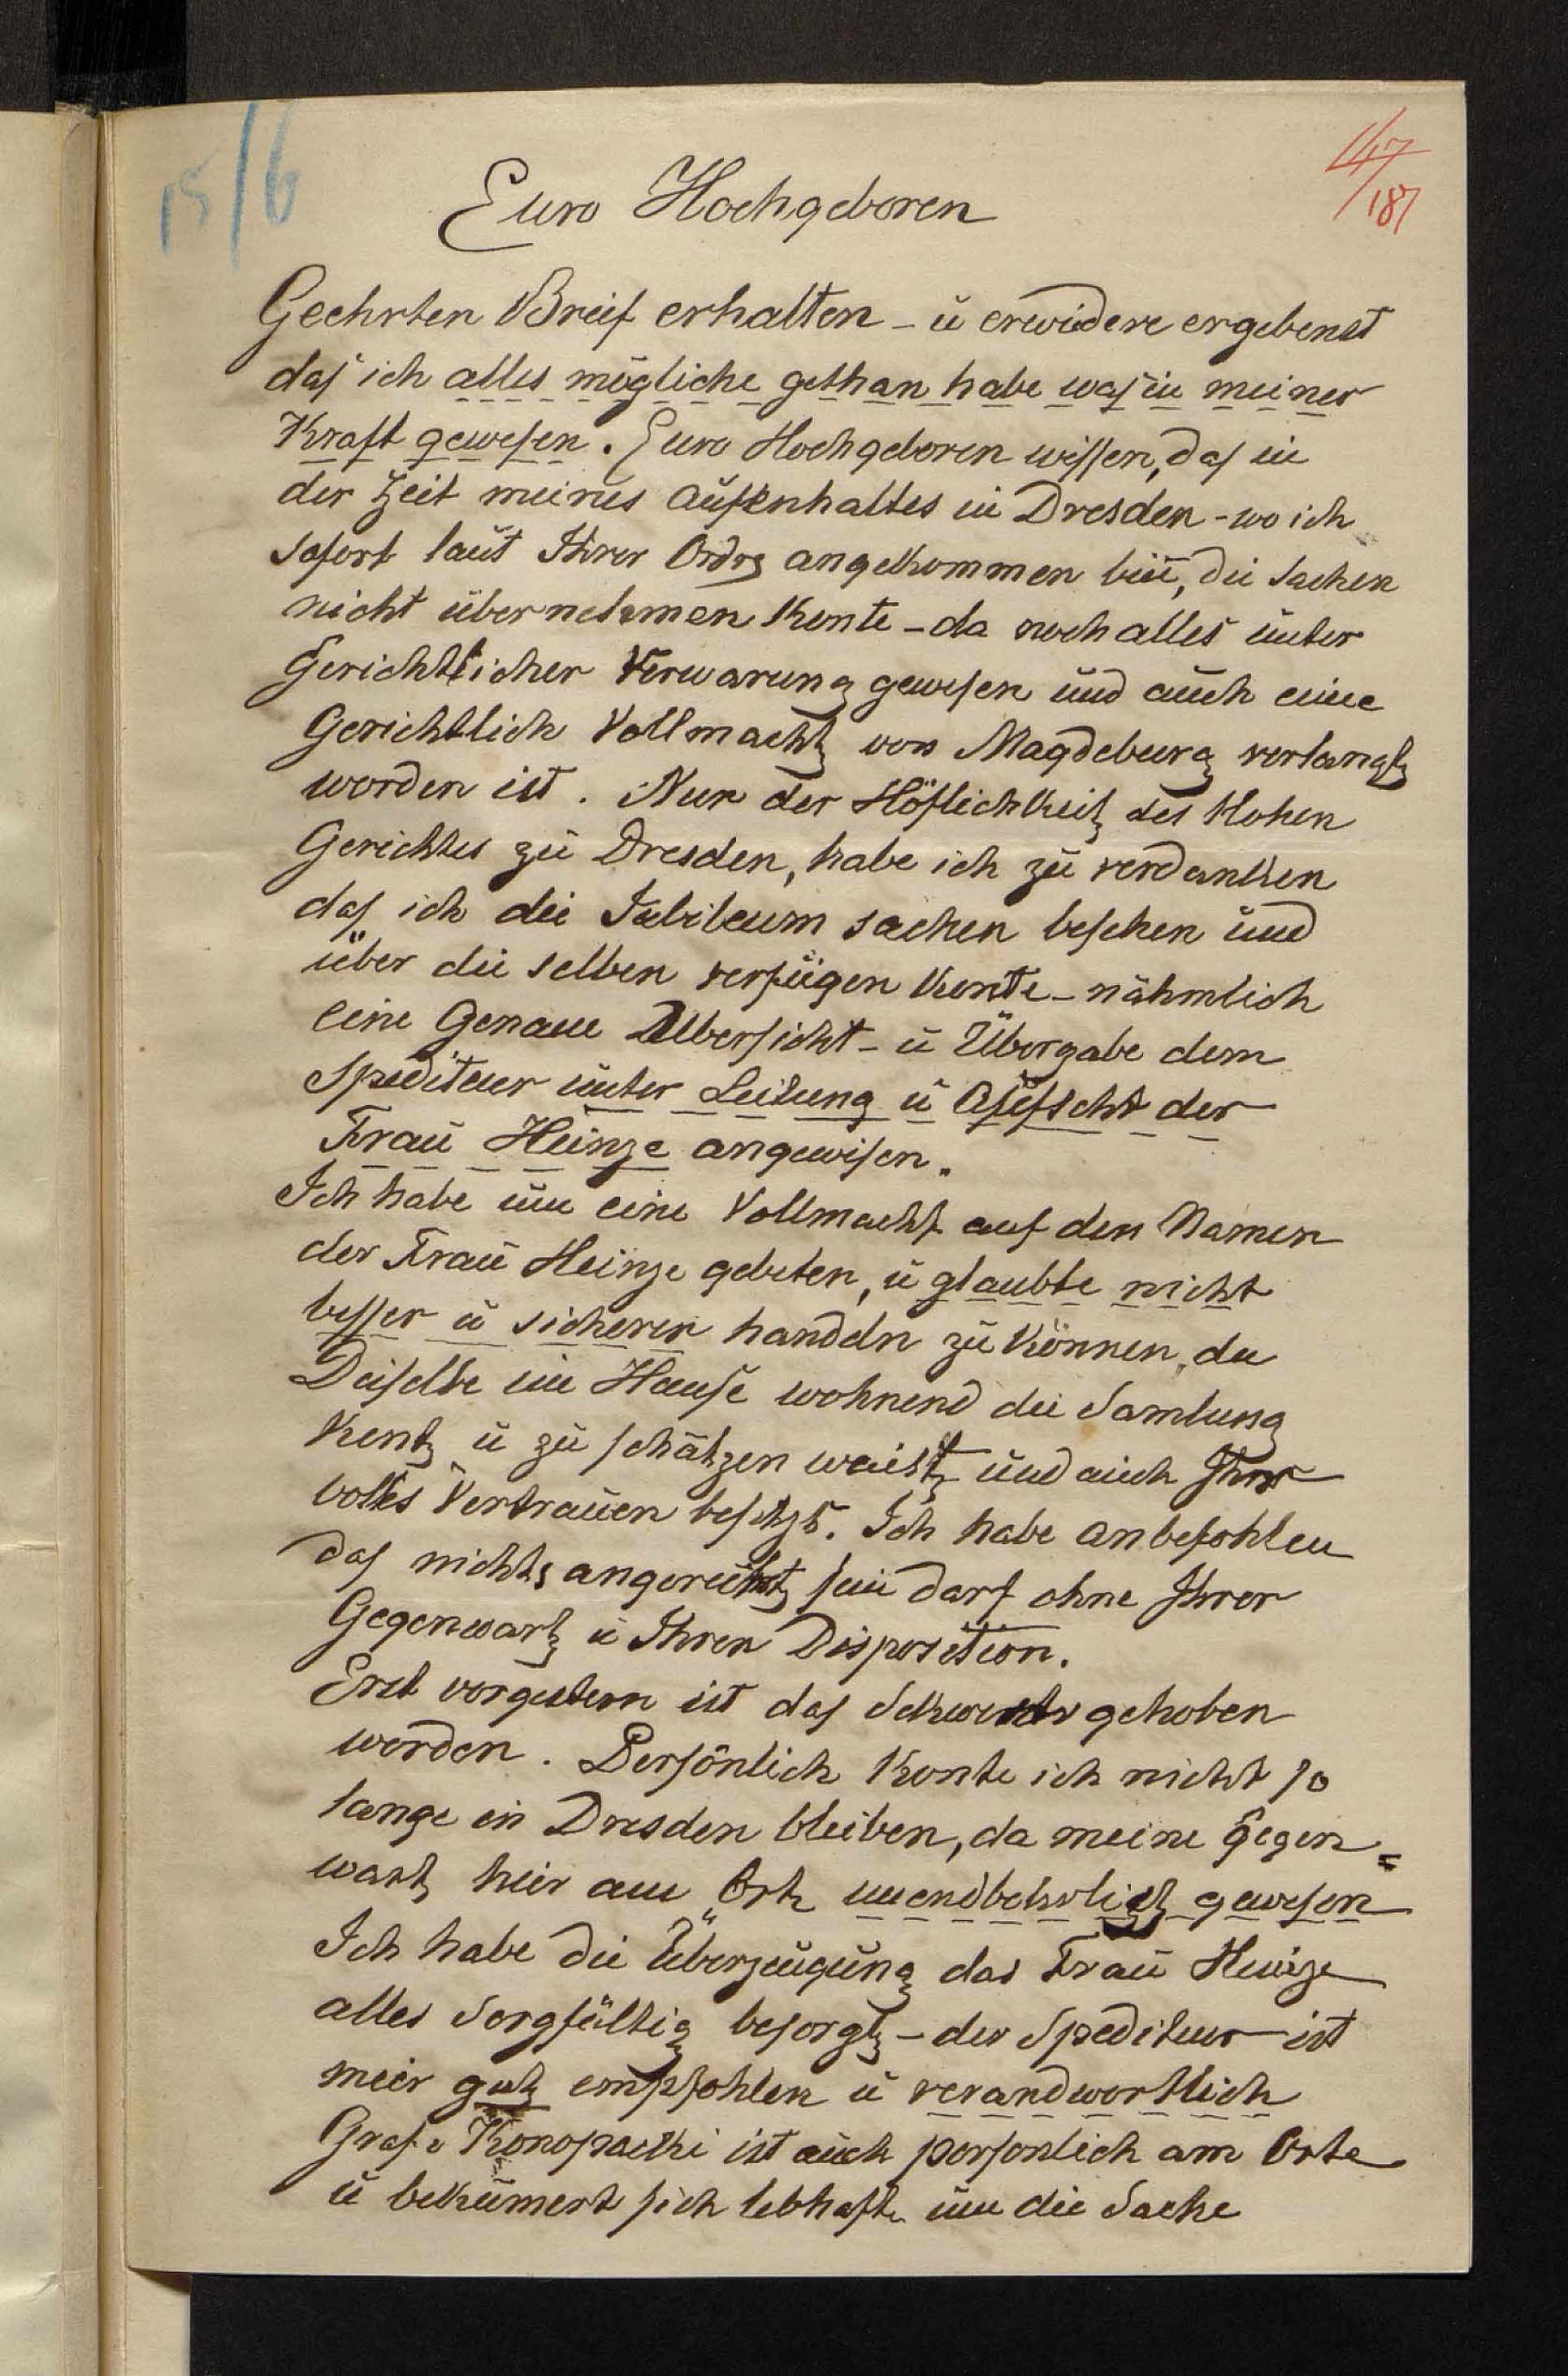 15/6
147/187
Euro Hochgeboren
Geehrten Breif erhalten - ü erwidere ergebenst
daß ich alles mögliche gethan habe waß in meiner
Kraft gewesen. Euro Hochgeboren wissen, daß in
der Zeit meines aufenhaltes in Dresden - wo ich
sofort laut Ihrer Ordre angekommen bin, die Sachen
nicht übernehmen konte - da noch alles unter
Gerichtlicher Verwarung gewesen und auch eine
Gerichtlich Vollmacht von Magdeburg verlangt
worden ist. Nur der Höflichkeit des Hohen
Gerichtes zu Dresden, habe ich zu verdanken
daß ich die Jubileum sachen besehen und
über die selben verfügen konte - nähmlich
eine Genaue Übersicht - ü Übergabe dem
Spediteur unter Leitung ü Aufscht der
Frau Heinze angewisen.
Ich habe um eine Vollmacht auf den Namen
der Frau Heinze gebeten, ü glaubte nicht
besser ü sicherer handeln zu können, da
Deiselbe im Hause wohnend die Samlung
kent ü zu schätzen weist und auch Ihr
volles Vertrauen besitzt. Ich habe anbefohlen
daß nichts angerührt sein darf ohne Ihrer
Gegenwart ü Ihren Disposition.
Erst vorgestern ist daß Sekwestr gehoben
worden. Persönlich konte ich nicht so
lange in Dresden bleiben, da meine gegen=
wart heir am Ort unendbehrlich gewesen
Ich habe die Überzeugung das Frau Heinze
alles Sorgfältig besorgt - der Spediteur ist
meir gut empfohlen ü verandwortlich
Graf v Konopacki ist auch persönlich am Orte
ü bekümert sich lebhaft um die Sache